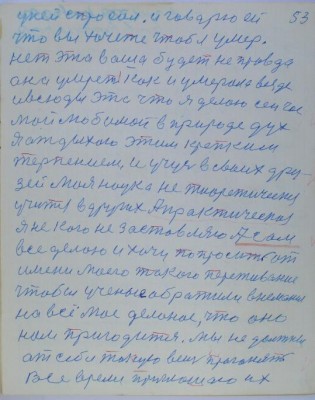 у ней спросил. и говорю ей 53
что вы хочете чтобы я умер.
нет эта ваша будет не правда
она умрет как и умерала везде
и всюды это что я делаю сей час
мой любимой в природе дух
Я отдыхаю этим крепким
терпением, и учус в своих дру-
зей моя наука не теоретически
учится в других А практическая
я не кого не заставляю А сам
все делаю и хочу попросить от
имени моего такого переживание
чтобы ученые обратили внимание
на всё мое делоное, что оно
нам пригодится. мы не должны
от себя такую вещ прогонять
Все время приглошаю их